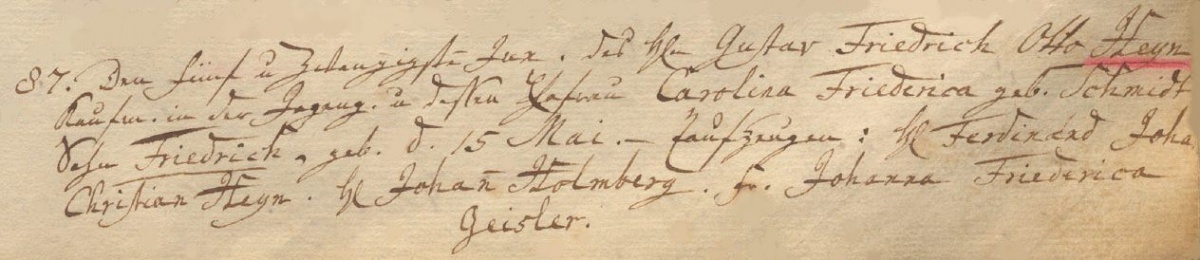 87. Den fünf u Zwanzigste Jun. des Hln Gustav Friedrich Otto Heyn
Kaufm. in der Jägeng. u dessen Ehefrau Carolina Friederica geb. Schmidt
Sohn Friedrich, geb. d. 15 Mai. – Taufzeugen: Hl Ferdinand Joha
Christian Heyn. Hl Johan̄ Holmberg. Fr. Johanna Friederica
Geisler.